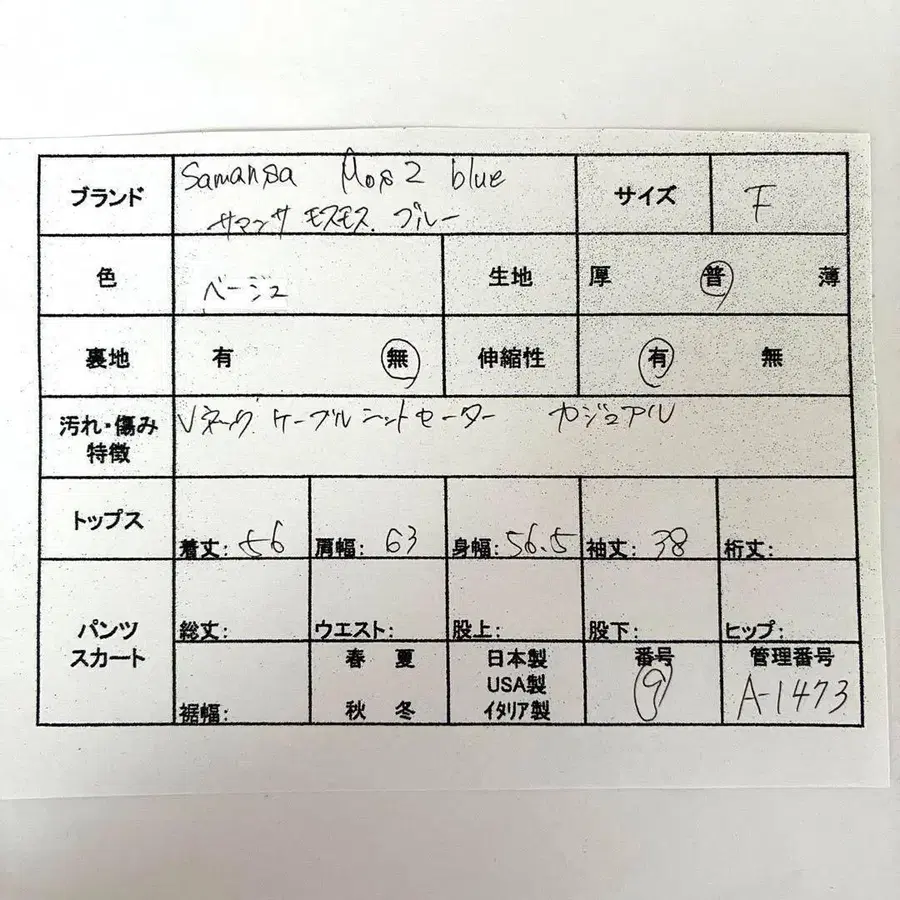 ブランド Samansa Mos2 blue サイズ F
サマンサ モスモス ブルー
色 ベージュ 生地 厚 普 薄
裏地 有 無 伸縮性 有 無
汚れ・傷み Vネック ケーブルニットセーター カジュアル
特徴
トップス
着丈: 56 肩幅: 63 身幅: 56.5 袖丈: 38 裄丈:
パンツ
スカート
総丈: ウエスト: 股上: 股下: ヒップ:
裾幅:
春 夏
秋 冬
日本製
USA製
イタリア製
番号
9
管理番号
A-1473